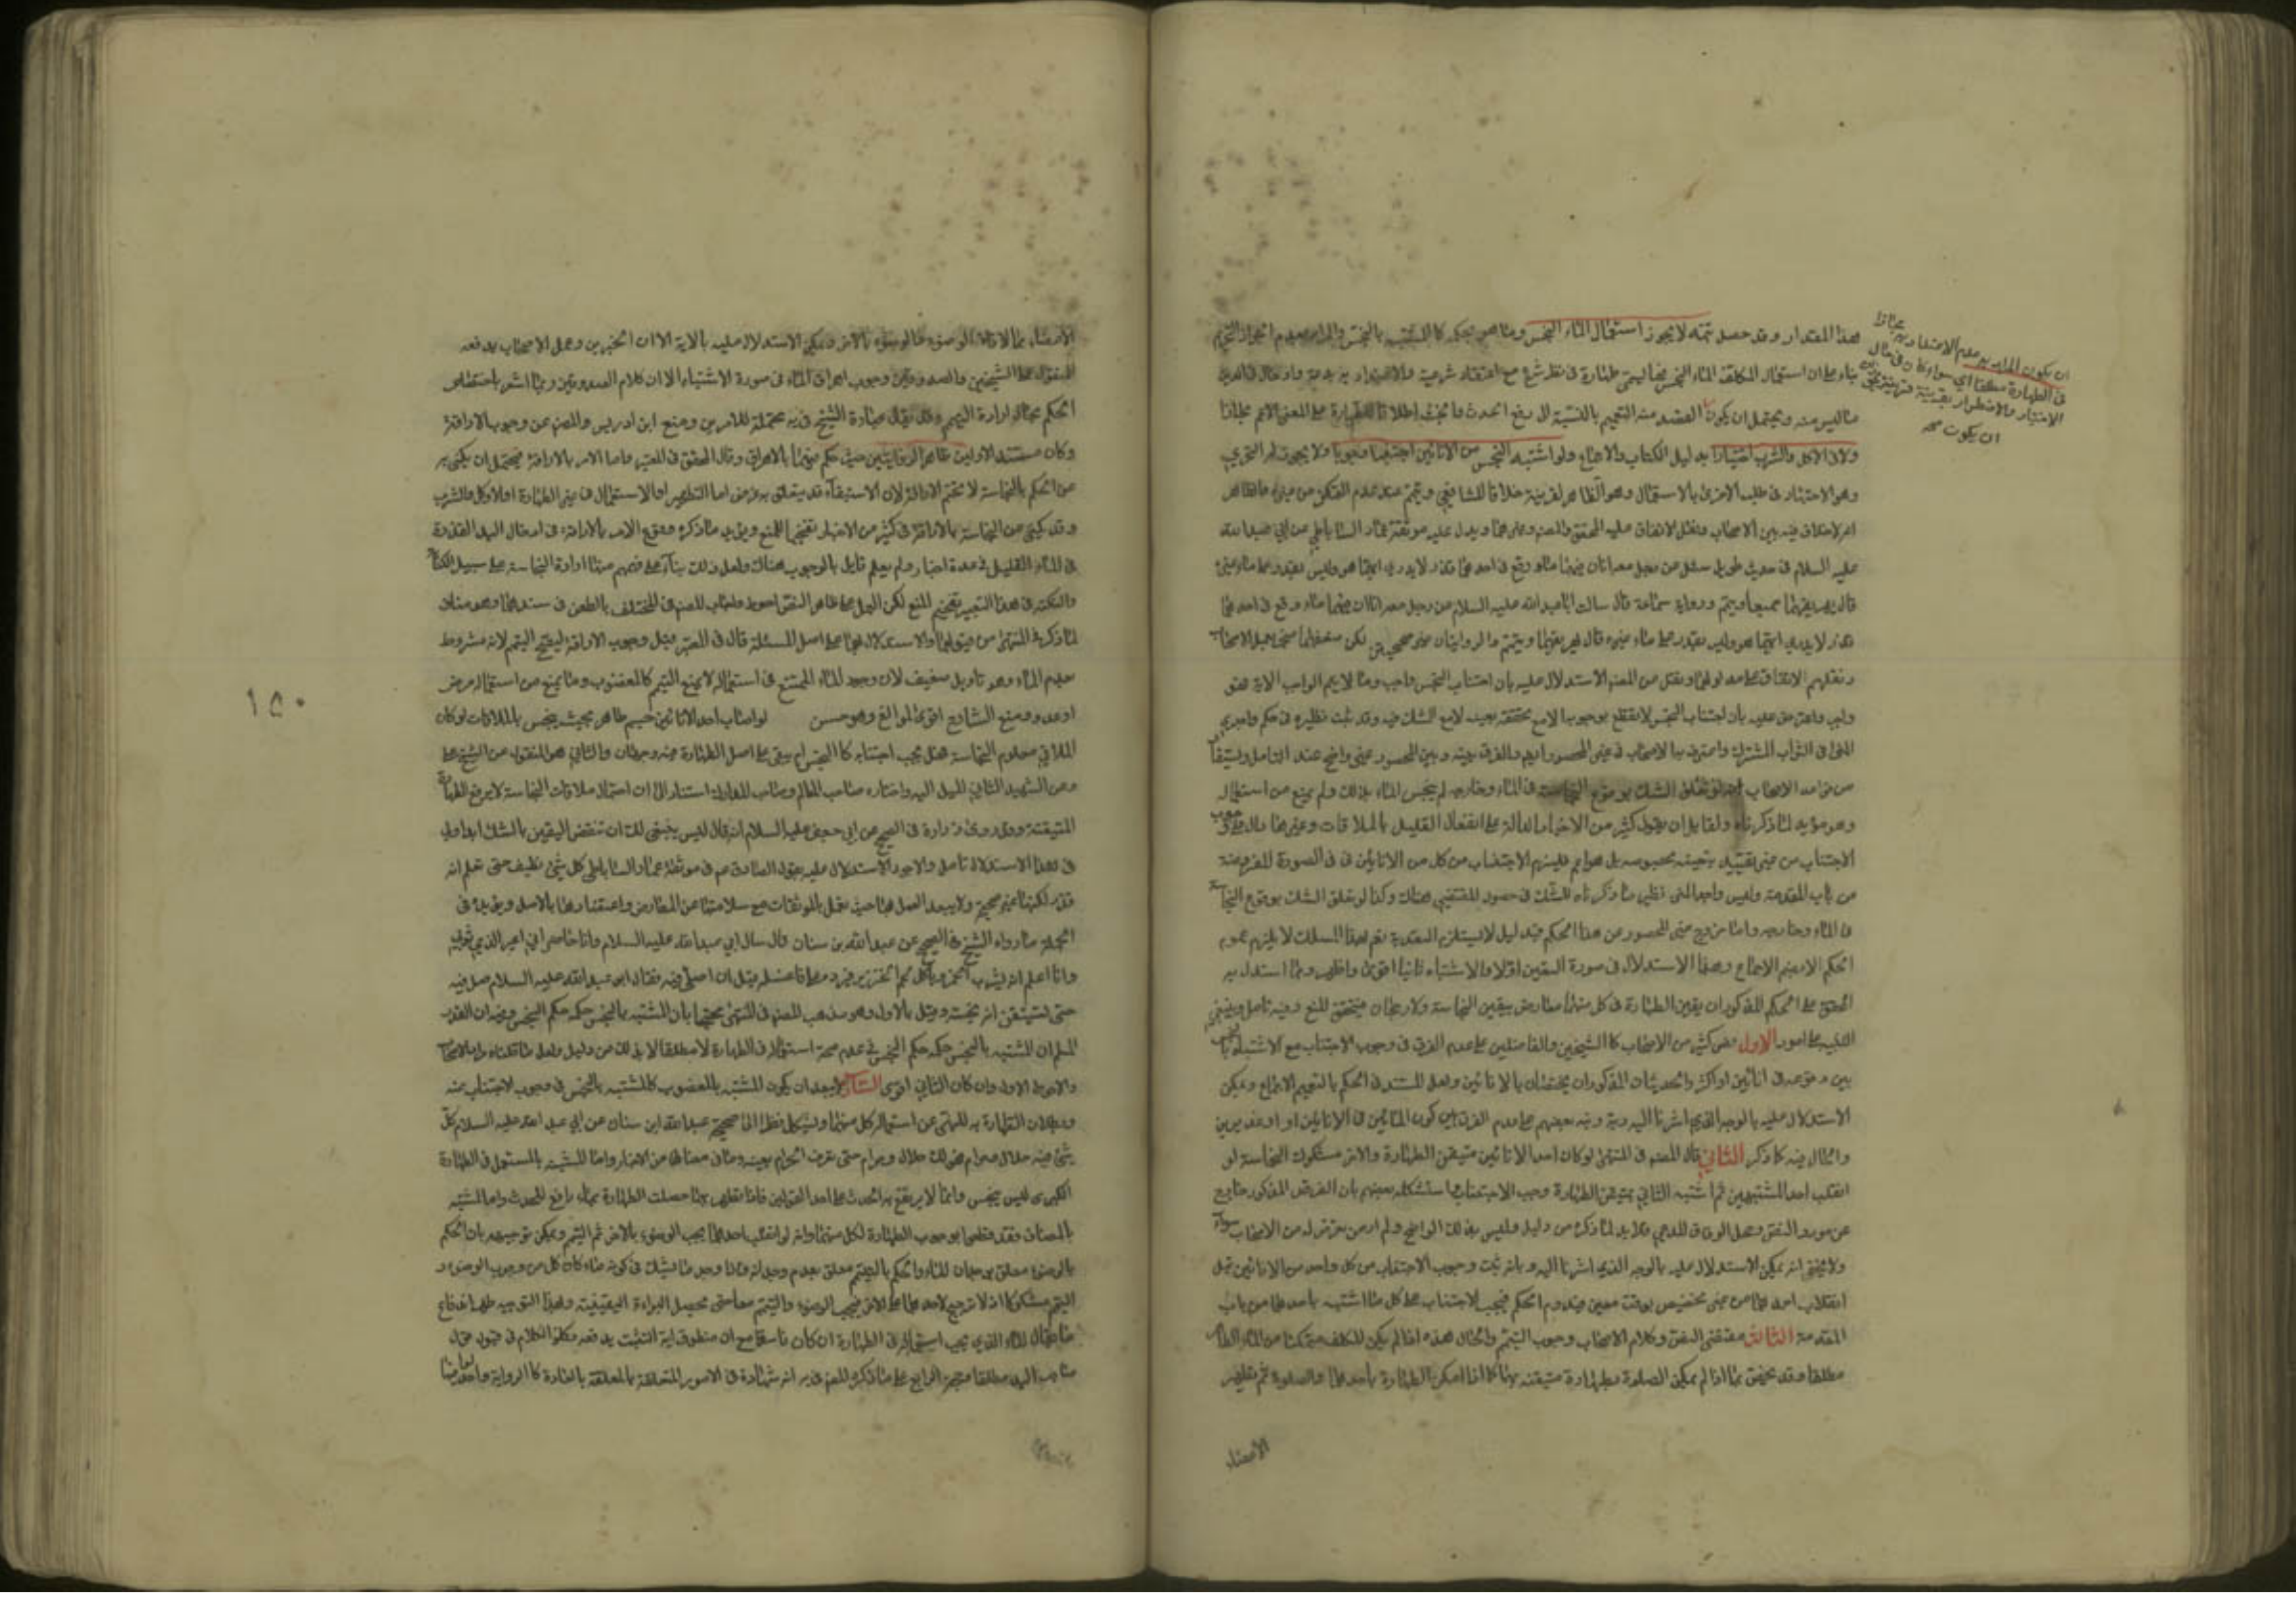 هذا المقدار وقد حصل تتمه لا يجوز استعمال الماء النجس وما هو بحكمه كالمشتبه بالنجس والمراد بعدم الجواز التحريم
بناء على ان استعمال المكلف الماء النجس فيما يسمى طهارة في نظر الشرع مع اعتقاد شرعيته والاعتداد به بدعة وادخال في الدين
ما ليس منه ويحتمل ان يكون القصد منه التعميم بالنسبة الى رفع الحدث والخبث اطلاقا للطهارة على المعنى الاعم مطلقا
ولا في الاكل والشرب اختيارا بدليل الكتاب والاجماع ولو اشتبه النجس من الانائين اجتنبا وجوبا ولا يجوز له التحري
وهو الاجتهاد في طلب الاحرى بالاستعمال وهو الظاهر لقرينة خلافا للشافعي ويتيمم عند عدم التمكن من غيره والظاهر
انه لا خلاف فيه بين الاصحاب ونقل الاتفاق عليه المحقق والمصنف وغيرهما ويدل عليه موثقة عمار الساباطي عن ابي عبد الله
عليه السلام في حديث طويل سئل عن رجل معه اناءان فيهما ماء وقع في احدهما قذر لا يدري ايهما هو وليس يقدر على ماء غيره
قال يهريقهما جميعا ويتيمم ورواية سماعة قال سالت ابا عبد الله عليه السلام عن رجل معه اناءان فيهما ماء وقع في احدهما
قذر لا يدري ايهما هو وليس يقدر على ماء غيره قال يهريقهما ويتيمم والروايتان غير صحيحتين لكن ضعفهما منجبر بعمل الاصحاب
ونقلهم الاتفاق على مدلولهما ونقل من المصنف الاستدلال عليه بان اجتناب النجس واجب وما لا يتم الواجب الا به فهو
واجب واعترض عليه بان اجتناب النجس لا يقطع بوجوبه الا مع تحققه بعينه لا مع الشك فيه وقد ثبت نظيره في حكم واجدي
المني في الثواب المشترك واعترف به الاصحاب في غير المحصور ايضا والفرق بينه وبين المحصور غير واضح عند التامل ويستفاد
من قواعد الاصحاب انه لو تعلق الشك بوقوع النجاسة في الماء وخارجه لم ينجس الماء بذلك ولم يمنع من استعماله
وهو مؤيد لما ذكرناه ولقايل ان يقول كثير من الاخبار الدالة على انفعال القليل بالملاقات وغيرهما دال على وجوب
الاجتناب من غير تقييد بتعينه بخصوصه بل هو اعم فيلزم الاجتناب من كل من الانائين في الصورة المفروضة
من باب المقدمة وليس واجدا المني نظير ما ذكرناه للشك في حصول المقتضي هناك وكذا لو تعلق الشك بوقوع النجاسة
في الماء وخارجه واما خروج غير المحصور عن هذا الحكم فبدليل لا يستلزم التعدية نعم هذا المسلك لا يلزم عموم
الحكم الا بضم الاجماع وهذا الاستدلال في صورة اليقين اولا والاشتباه ثانيا اقوى واظهر وربما استدل به
المحقق على الحكم المذكور ان يقين الطهارة في كل منهما معارض بيقين النجاسة ولا رجحان فيتحقق المنع وفيه تامل وينبغي
التنبيه على امور الاول نص كثير من الاصحاب كالشيخين والفاضلين على عدم الفرق في وجوب الاجتناب مع الاشتباه بالنجس
بين وقوعه في انائين او اكثر والحديثان المذكوران يختصان بالانائين ولعل المستند في الحكم بالتعميم الاجماع ويمكن
الاستدلال عليه بالوجه الذي اشرنا اليه ونبه بعضهم على عدم الفرق بين كون المائين في الانائين او غديرين
والحال فيه كما ذكر الثاني قال المصنف في المنتهى لو كان احد الانائين متيقن الطهارة والاخر مشكوك النجاسة لو
انقلب احد المشتبهين ثم اشتبه الثاني بمتيقن الطهارة وجب الاجتناب واستشكله بعضهم بان الفرض المذكور خارج
عن مورد النص ومحل الوفاق للمدعي فلا بد لما ذكره من دليل وليس بذلك الواضح ولم ار من تعرض له من الاصحاب سواه
ولا يخفى انه يمكن الاستدلال عليه بالوجه الذي اشرنا اليه وبانه ثبت وجوب الاجتناب من كل واحد من الانائين قبل
انقلاب احدهما من غير تخصيص بوقت معين فيدوم الحكم فيجب الاجتناب على كل ما اشتبه باحدهما من باب
المقدمة الثالث مقتضى النص وكلام الاصحاب وجوب التيمم والحال هذه اذا لم يكن المكلف متمكنا من الماء الطاهر
مطلقا وقد يخص بما اذا لم يمكن الصلوة بطهارة متيقنة بهما كما اذا امكن الطهارة باحدهما والصلوة ثم تطهير
الاعضاء
ان يكون المراد به عدم الاعتداد به مجازا
في الطهارة مطلقا اي سواء كان في حال
الاختيار والاضطرار بقرينة
ان يكون
الاعضاء بما لاقاه الوضوء والوضوء بالاخر ويمكن الاستدلال عليه بالآية الا ان الخبرين وعمل الاصحاب يدفعه
المنقول عن الشيخين والصدوقين وجوب اهراق الماء في صورة الاشتباه الا ان كلام الصدوقين ربما اشعر باختصاص
الحكم بحال ارادة التيمم وقيل عبارة الشيخ في يه محتملة للامرين ومنع ابن ادريس والمصنف من وجوب الاراقة
وكان مستند الاولين ظاهر الروايتين حيث حكم فيهما بالاهراق وقال المحقق في المعتبر واما الامر بالاراقة فيحتمل ان يكنى به
عن الحكم بالنجاسة لا تحتم الاراقة لان الاستبقاء قد يتعلق به غرض اما التطهير او الاستعمال في غير الطهارة او الاكل والشرب
وقد يكنى عن النجاسة بالاراقة في كثير من الاخبار تفخيما للمنع ويؤيد ما ذكره وقوع الامر بالاراقة في ادخال اليد القذرة
في الماء القليل في عدة اخبار ولم يعلم قايل بالوجوب هناك ولعل ذلك بناء على فهمهم منها ارادة النجاسة على سبيل الكناية
والنكتة في هذا التعبير تفخيم المنع لكن العمل على ظاهر النص احوط واجاب المصنف في المختلف بالطعن في سندهما وهو مناف
لما ذكره في المنتهى من قبولهما والاستدلال بهما على اصل المسئلة قال في المعتبر قيل وجوب الاراقة ليصح التيمم لانه مشروط
بعدم الماء وهو تاويل ضعيف لان وجود الماء الممنوع من استعماله لا يمنع التيمم كالمغصوب وما يمنع من استعماله مرض
او عدو ومنع الشارع اقوى الموانع وهو حسن لو اصاب احد الانائين جسم طاهر بحيث ينجس بالملاقات لو كان
الملاقي معلوم النجاسة فهل يجب اجتنابه كالنجس ام يبقى على اصل الطهارة فيه وجهان والثاني هو المنقول عن الشيخ علي
وعن الشهيد الثاني الميل اليه واختاره صاحب المعالم وصاحب المدارك استنادا الى ان احتمال ملاقات النجاسة لا يرفع الطهارة
المتيقنة وقد روى زرارة في الصحيح عن ابي جعفر عليه السلام انه قال ليس ينبغي لك ان تنقض اليقين بالشك ابدا ولي
في هذا الاستدلال تامل والاجود الاستدلال عليه بقول الصادق عم في موثقة عمار الساباطي كل شئ نظيف حتى تعلم انه
قذر لكنها غير صحيحة ولا يبعد العمل بها حيث نعمل بالموثقات مع سلامتها عن المعارض واعتضادها بالاصل ويؤيده في
الجملة ما رواه الشيخ في الصحيح عن عبد الله بن سنان قال سال ابي عبد الله عليه السلام وانا حاضر اني اعير الذمي ثوبي
وانا اعلم انه يشرب الخمر وياكل لحم الخنزير فيرده علي فاغسله قبل ان اصلي فيه فقال ابو عبد الله عليه السلام صل فيه
حتى تستيقن انه نجسه وقيل بالاول وهو مذهب المصنف في المنتهى محتجا بان المشتبه بالنجس حكمه حكم النجس وفيه ان القدر
المسلم ان المشتبه بالنجس حكمه حكم النجس في عدم صحة استعماله في الطهارة لا مطلقا
والاحوط الاول وان كان الثاني اقوى لا يبعد ان يكون المشتبه بالمغصوب كالمشتبه بالنجس في وجوب الاجتناب منه
وبطلان الطهارة به للنهي عن استعمال كل منهما ويشكل نظرا الى صحيحة عبد الله ابن سنان عن ابي عبد الله عليه السلام كل
شئ فيه حلال وحرام فهو لك حلال حتى تعرف الحرام بعينه وما في معناها من الاخبار واما المشتبه بالمستعمل في الطهارة
الكبرى فليس بنجس وانما لا يرتفع به الحدث على احد القولين فاذا تطهر بهما حصلت الطهارة بماء رافع للحدث واما المشتبه
بالمضاف فقد قطعوا بوجوب الطهارة لكل منهما وانه لو انقلب احدهما يجب الوضوء بالاخر ثم التيمم ويمكن توجيهه بان الحكم
بالوضوء معلق بوجدان الماء والحكم بالتيمم معلق بعدم وجدانه فاذا وجد ما يشك في كونه ماء كان كل من وجوب الوضوء و
التيمم مشكوكا اذ لا ترجيح لاحدهما على الاخر فيجب الوضوء والتيمم معا حتى يحصل البراءة اليقينية وبهذا التوجيه ظهر اندفاع
ما يقال الماء الذي يجب استعماله في الطهارة ان كان
١٥٠